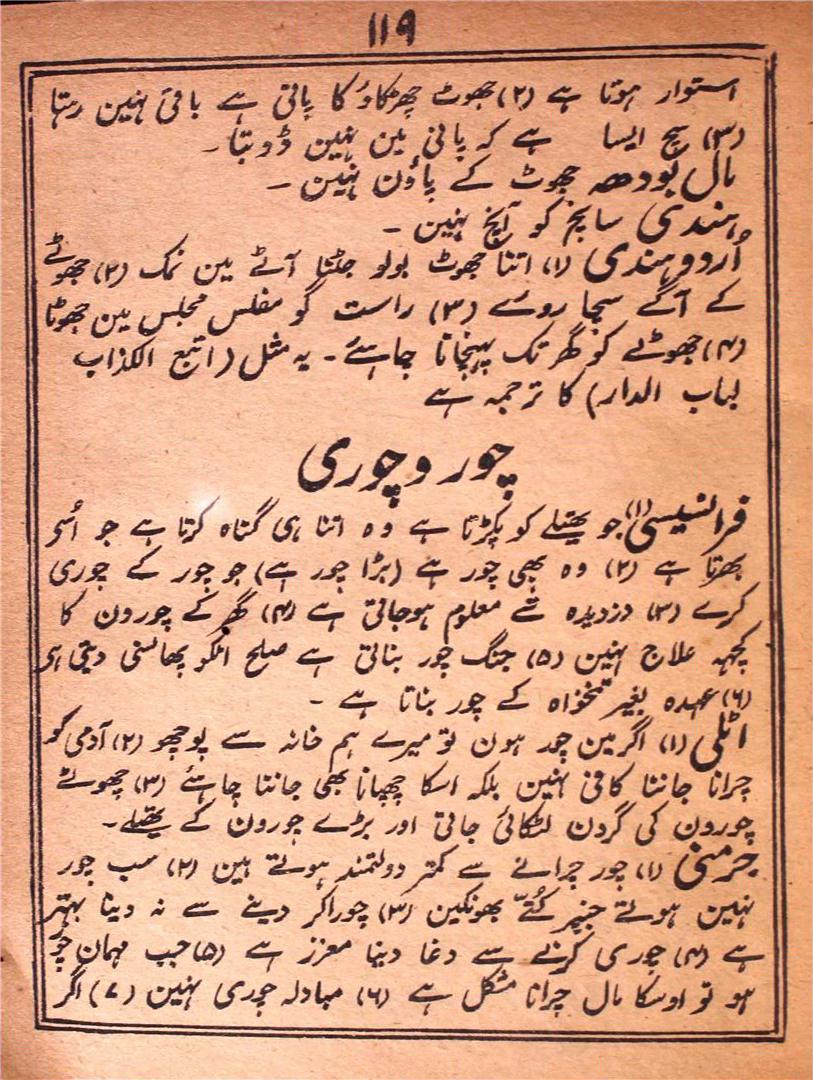 ۱۱۹
استوار ہوتا ہے (۲) جھوٹ چھڑکاؤ کا پانی ہے باقی نہین رہتا
(۳) سچ ایسا ہے کہ پانی مین نہین ڈوبتا۔
مال بودھہ جھوٹ کے پاؤن نہین۔
ہندی سانچ کو آنچ نہین۔
اُردو ہندی (۱) اتنا جھوٹ بولو جتنا آٹے مین نمک (۲) جھوٹے
کے آگے سچا روئے (۳) راست گو مفلس مجلس مین جھوٹا
(۴) جھوٹے کو گھر تک پہنچانا چاہئے۔ یہ مثل (اتبع الکذاب
لباب الدار) کا ترجمہ ہے
چور و چوری
فرانسیسی (۱) جو تھیلے کو پکڑتا ہے وہ اتنا ہی گناہ کرتا ہے جو اُسے
بھرتا ہے (۲) وہ بھی چور ہے (بڑا چور ہے) جو چور کے چوری
کرے (۳) دزدیدہ شے معلوم ہوجاتی ہے (۴) گھر کے چورون کا
کچھہ علاج نہین (۵) جنگ چور بناتی ہے صلح انکو پھانسی دیتی ہی
(۶) عہدہ بغیر تنخواہ کے چور بناتا ہے۔
اٹلی (۱) اگر مین چور ہون تو میرے ہم خانہ سے پوچھو (۲) آدمی کو
چرانا جاننا کافی نہین بلکہ اسکا چھپانا بھی جاننا چاہئے (۳) چھوٹے
چورون کی گردن لٹکائی جاتی اور بڑے چورون کے تھیلے۔
جرمنی (۱) چور چرانے سے کمتر دولتمند ہوتے ہین (۲) سب چور
نہین ہوتے جنپر کُتے بھونکین (۳) چوراکر دینے سے نہ دینا بہتر
ہے (۴) چوری کرنے سے دغا دینا معزز ہے (۵) جب مہمان چور
ہو تو اوسکا مال چرانا مشکل ہے (۶) مبادلہ چوری نہین (۷) اگر